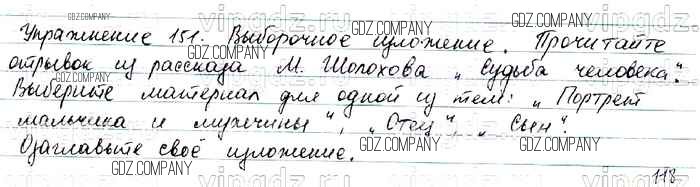 Упражнение 151. Выборочное изложение. Прочитайте
отрывок из рассказа М. Шолохова „Судьба человека".
Выберите материал для одной из тем: „Портрет
мальчика и мужчины", „Отец", „Сын".
Озаглавьте своё изложение.
118
GDZ.COMPANY
GDZ.COMPANY
GDZ.COMPANY
GDZ.COMPANY
GDZ.COMPANY
GDZ.COMPANY
GDZ.COMPANY
GDZ.COMPANY